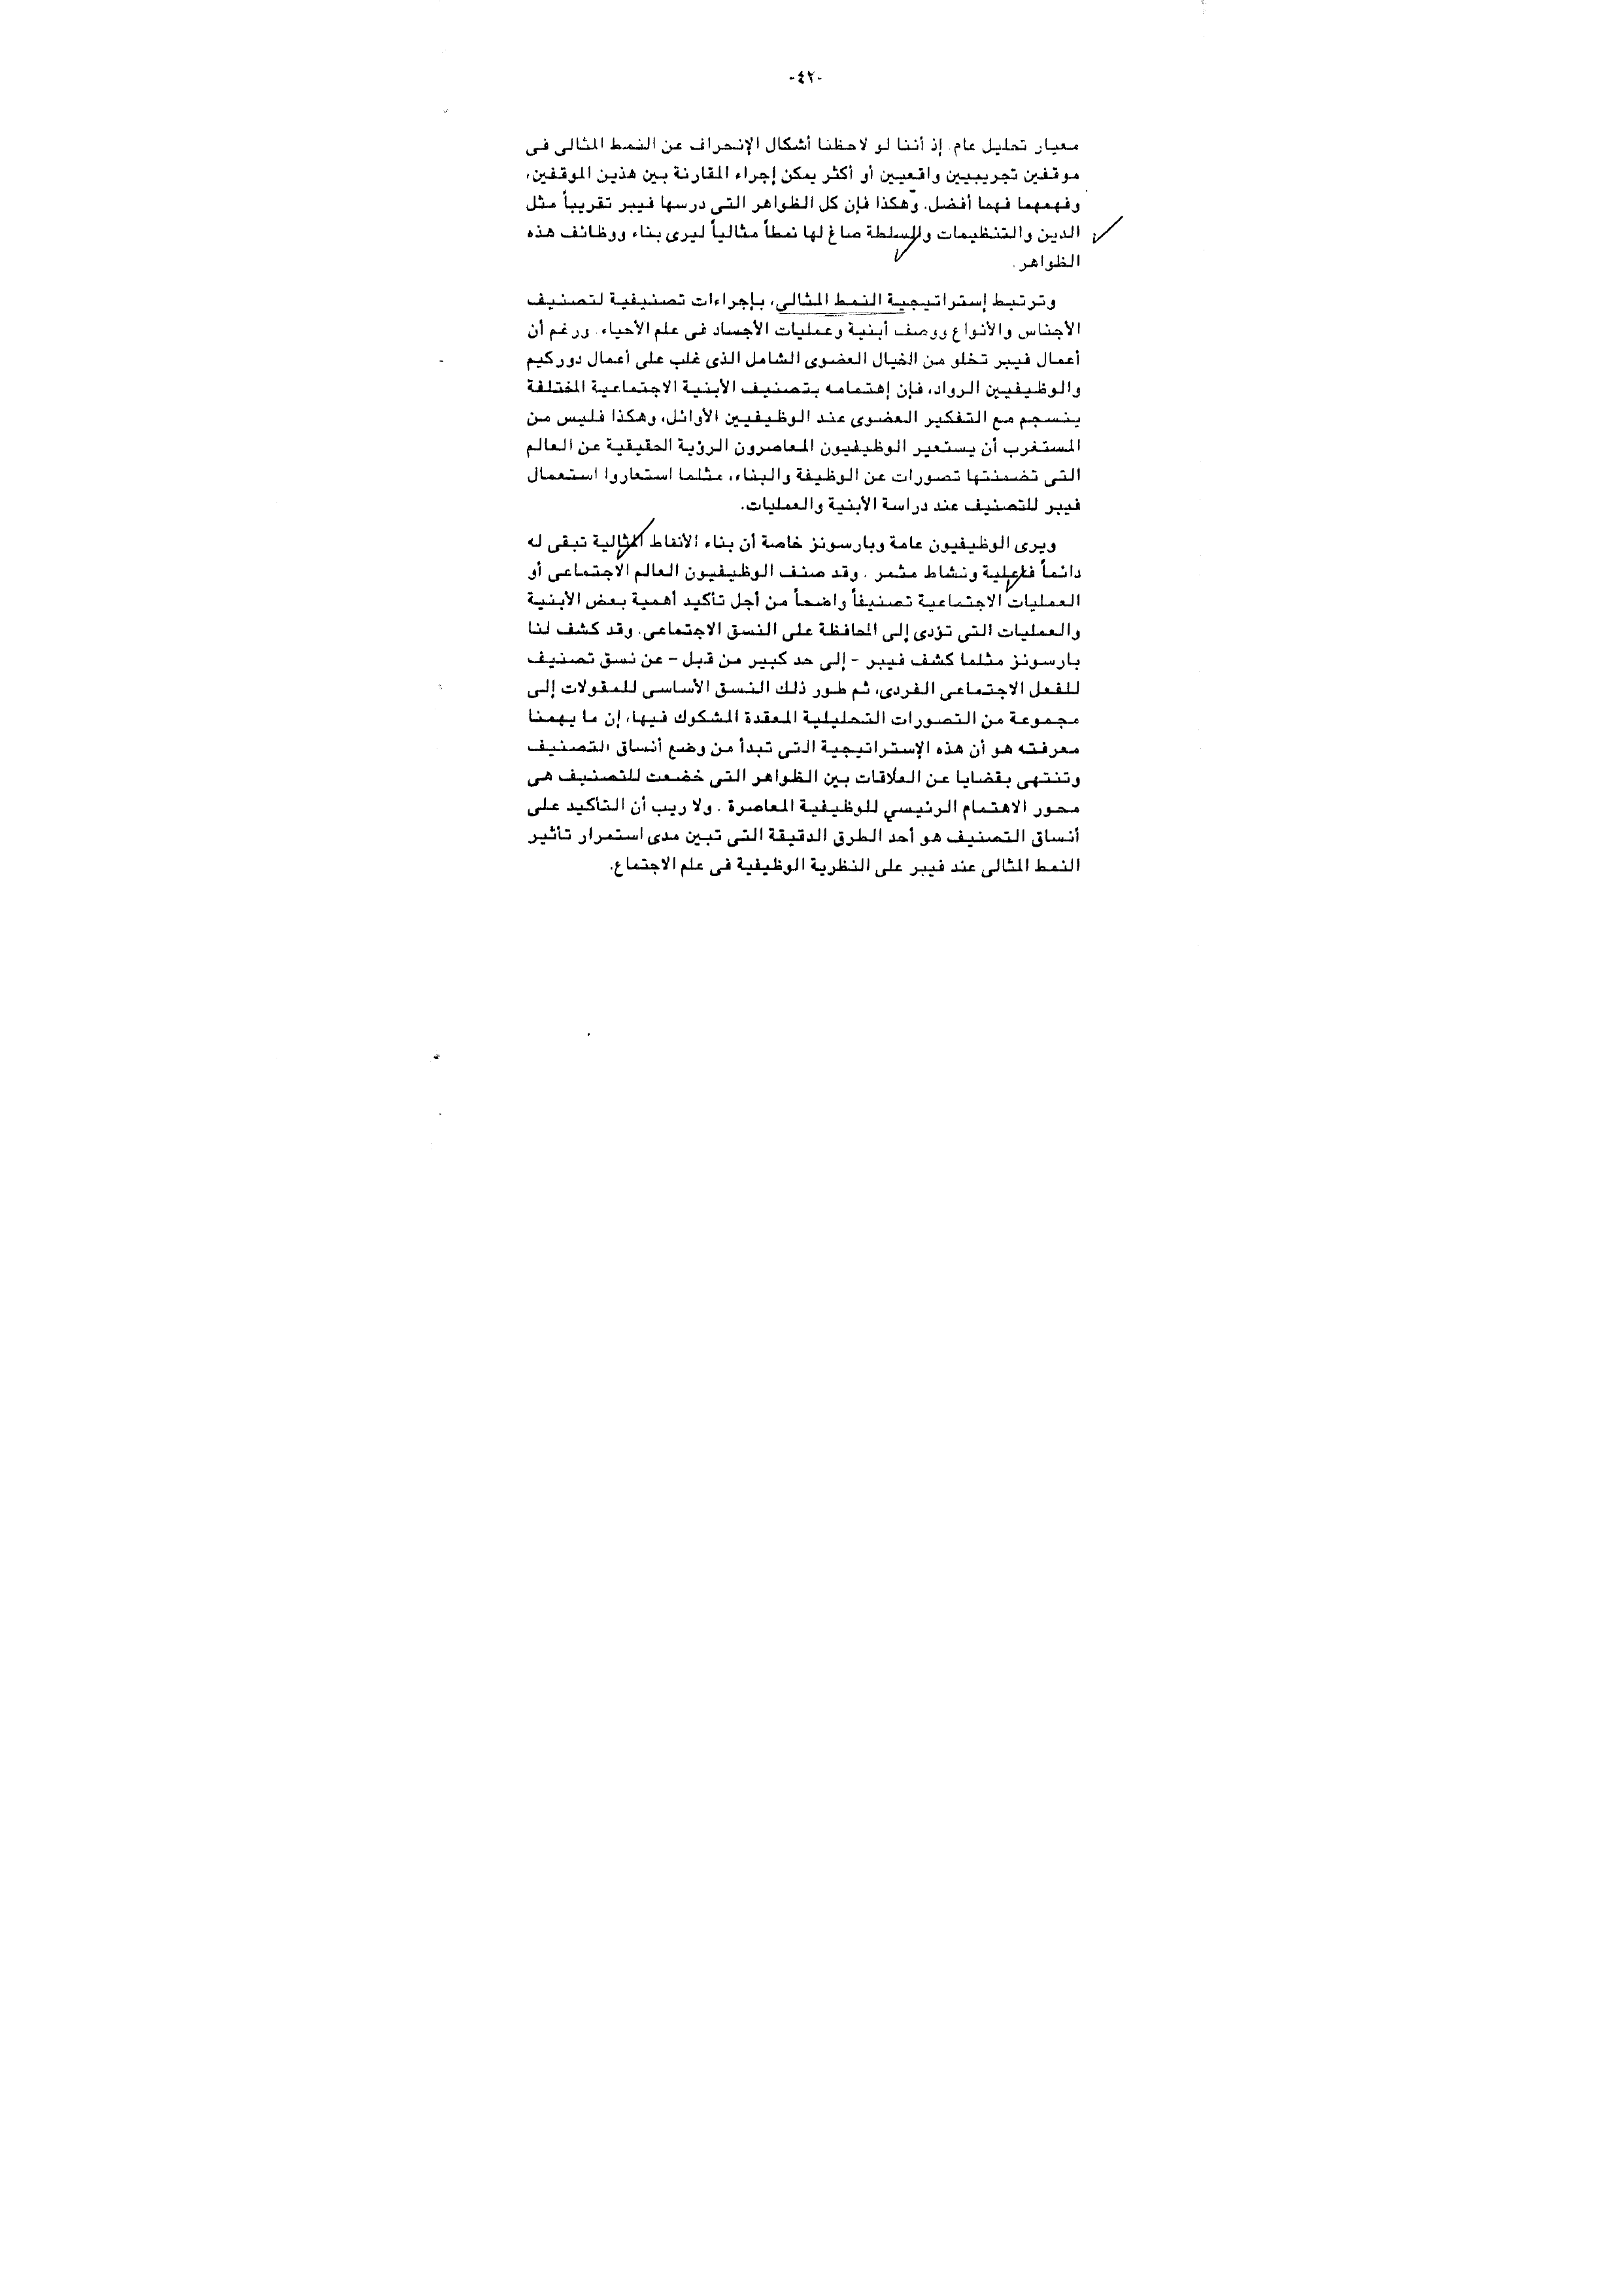 -٤٢-
معيار تحليل عام. إذ أننا لو لاحظنا أشكال الإنحراف عن النمط المثالى فى
موقفين تجريبيين واقعيين أو أكثر يمكن إجراء المقارنة بين هذين الموقفين،
وفهمهما فهما أفضل. وهكذا فإن كل الظواهر التى درسها فيبر تقريباً مثل
الدين والتنظيمات والسلطة صاغ لها نمطاً مثالياً ليرى بناء ووظائف هذه
الظواهر.
وترتبط إستراتيجية النمط المثالى، بإجراءات تصنيفية لتصنيف
الأجناس والأنواع ووصف أبنية وعمليات الأجساد فى علم الأحياء. ورغم أن
أعمال فيبر تخلو من الخيال العضوى الشامل الذى غلب على أعمال دوركيم
والوظيفيين الرواد، فإن إهتمامه بتصنيف الأبنية الاجتماعية المختلفة
ينسجم مع التفكير العضوى عند الوظيفيين الأوائل، وهكذا فليس من
المستغرب أن يستعير الوظيفيون المعاصرون الرؤية الحقيقية عن العالم
التى تضمنتها تصورات عن الوظيفة والبناء، مثلما استعاروا استعمال
فيبر للتصنيف عند دراسة الأبنية والعمليات.
ويرى الوظيفيون عامة وبارسونز خاصة أن بناء الأنماط المثالية تبقى له
دائماً فاعلية ونشاط مثمر . وقد صنف الوظيفيون العالم الاجتماعى أو
العمليات الاجتماعية تصنيفاً واضحاً من أجل تأكيد أهمية بعض الأبنية
والعمليات التى تؤدى إلى المحافظة على النسق الاجتماعى. وقد كشف لنا
بارسونز مثلما كشف فيبر - إلى حد كبير من قبل - عن نسق تصنيف
للفعل الاجتماعى الفردى، ثم طور ذلك النسق الأساسى للمقولات إلى
مجموعة من التصورات التحليلية المعقدة المشكوك فيها، إن ما يهمنا
معرفته هو أن هذه الإستراتيجية التى تبدأ من وضع أنساق التصنيف
وتنتهى بقضايا عن العلاقات بين الظواهر التى خضعت للتصنيف هى
محور الاهتمام الرئيسي للوظيفية المعاصرة . ولا ريب أن التأكيد على
أنساق التصنيف هو أحد الطرق الدقيقة التى تبين مدى استمرار تأثير
النمط المثالى عند فيبر على النظرية الوظيفية فى علم الاجتماع.